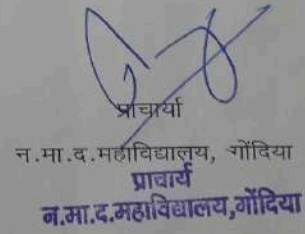 प्राचार्या
न.मा.द.महाविद्यालय, गोंदिया
प्राचार्य
न.मा.द.महाविद्यालय,गोंदिया